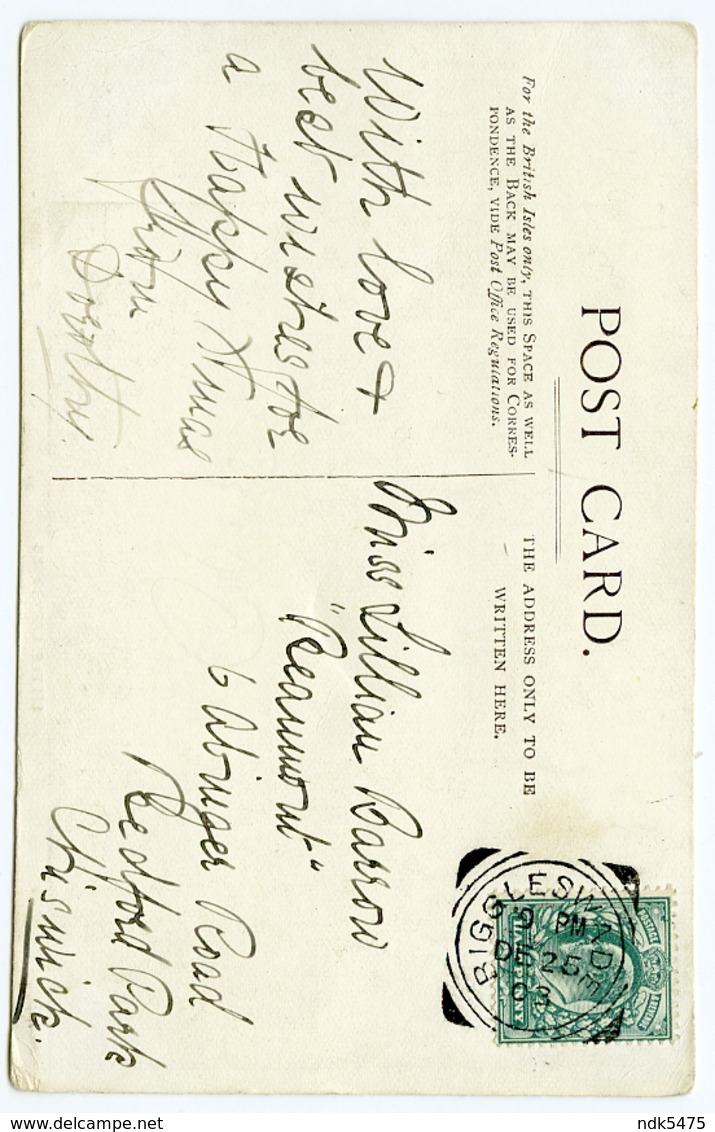 POST CARD.
For the British Isles only, THIS SPACE AS WELL
AS THE BACK MAY BE USED FOR CORRES-
PONDENCE, VIDE Post Office Regulations.
THE ADDRESS ONLY TO BE
WRITTEN HERE.
With love +
best wishes for
a Happy Xmas
from
Dorothy
Miss Lillian Barrow
"Beaumont"
6 Abinger Road
Bedford Park
Chiswick.
BIGGLESWADE
9 PM
DE 25
ndk5475